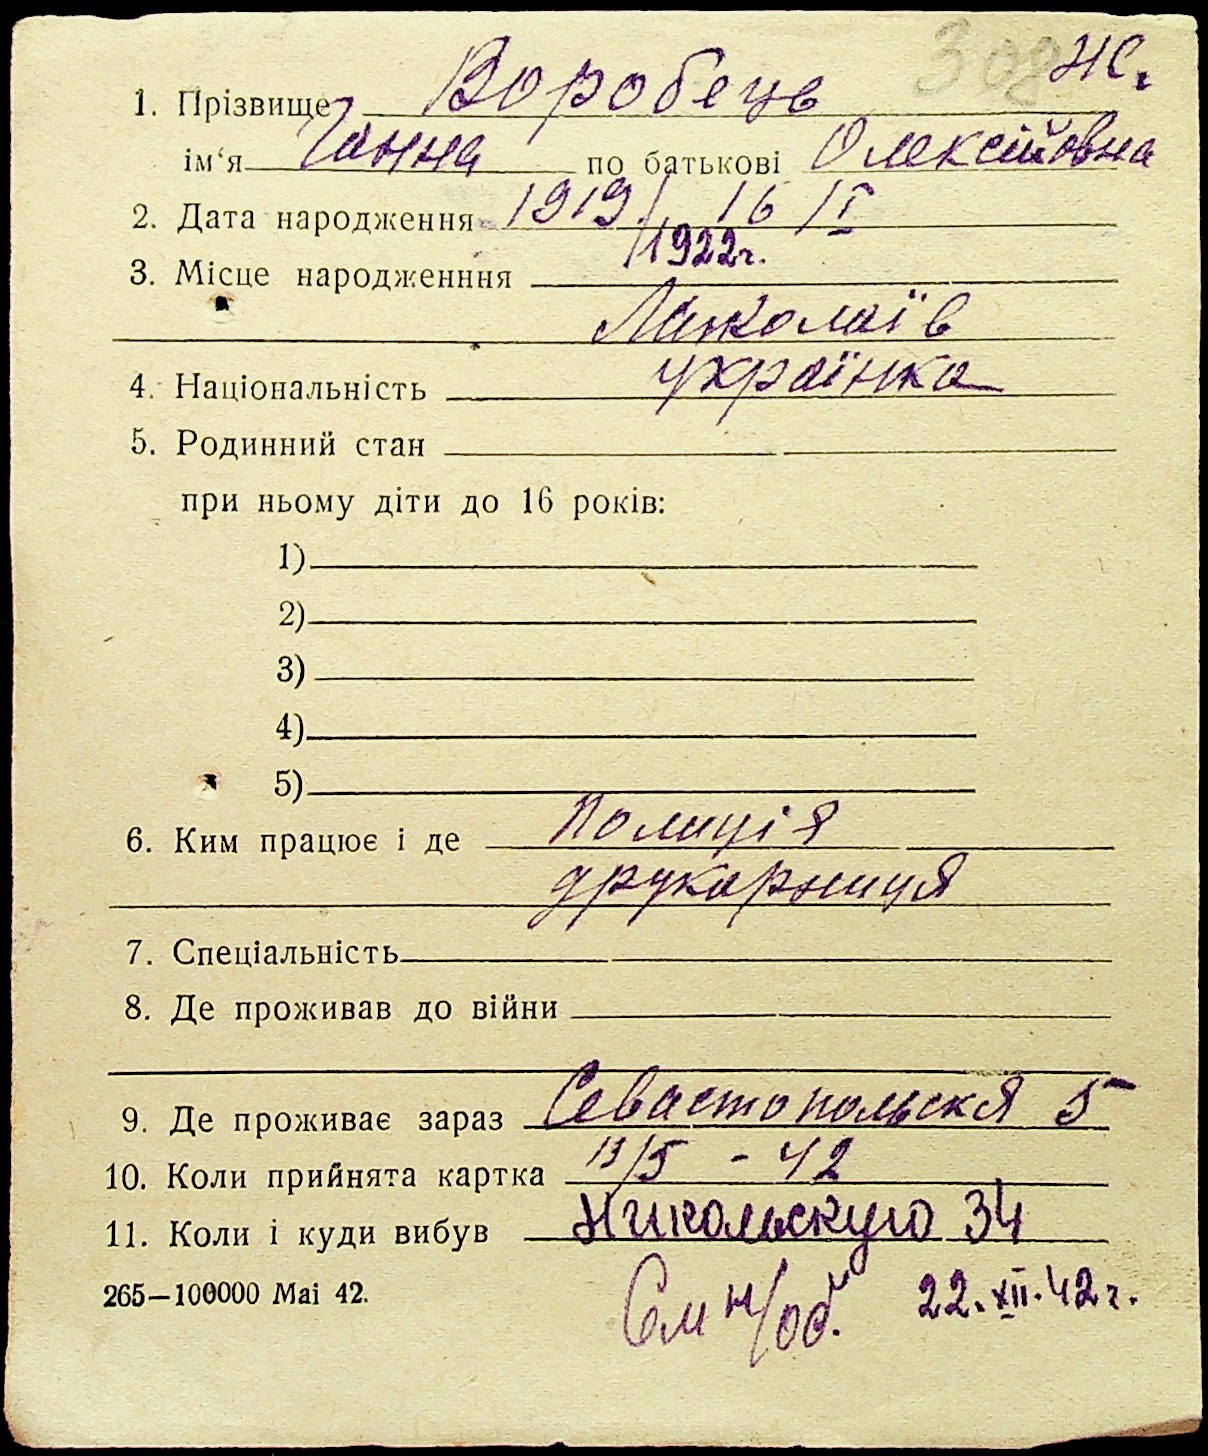 Ж.
1. Прізвище Воробець
ім‘я Ганна по батькові Олексіївна
2. Дата народження 1919/ 16/I
/1922г.
3. Місце народженння
Миколаїв
4. Національність українка
5. Родинний стан
при ньому діти до 16 років:
1)
2)
3)
4)
5)
6. Ким працює і де Полиція
друкарниця
7. Спеціальність
8. Де проживав до війни
9. Де проживає зараз Севастопольскя 5
10. Коли прийнята картка 13/5 - 42
11. Коли і куди вибув Никольскую 34
265—100000 Mai 42. См н/об. 22.XII.42г.